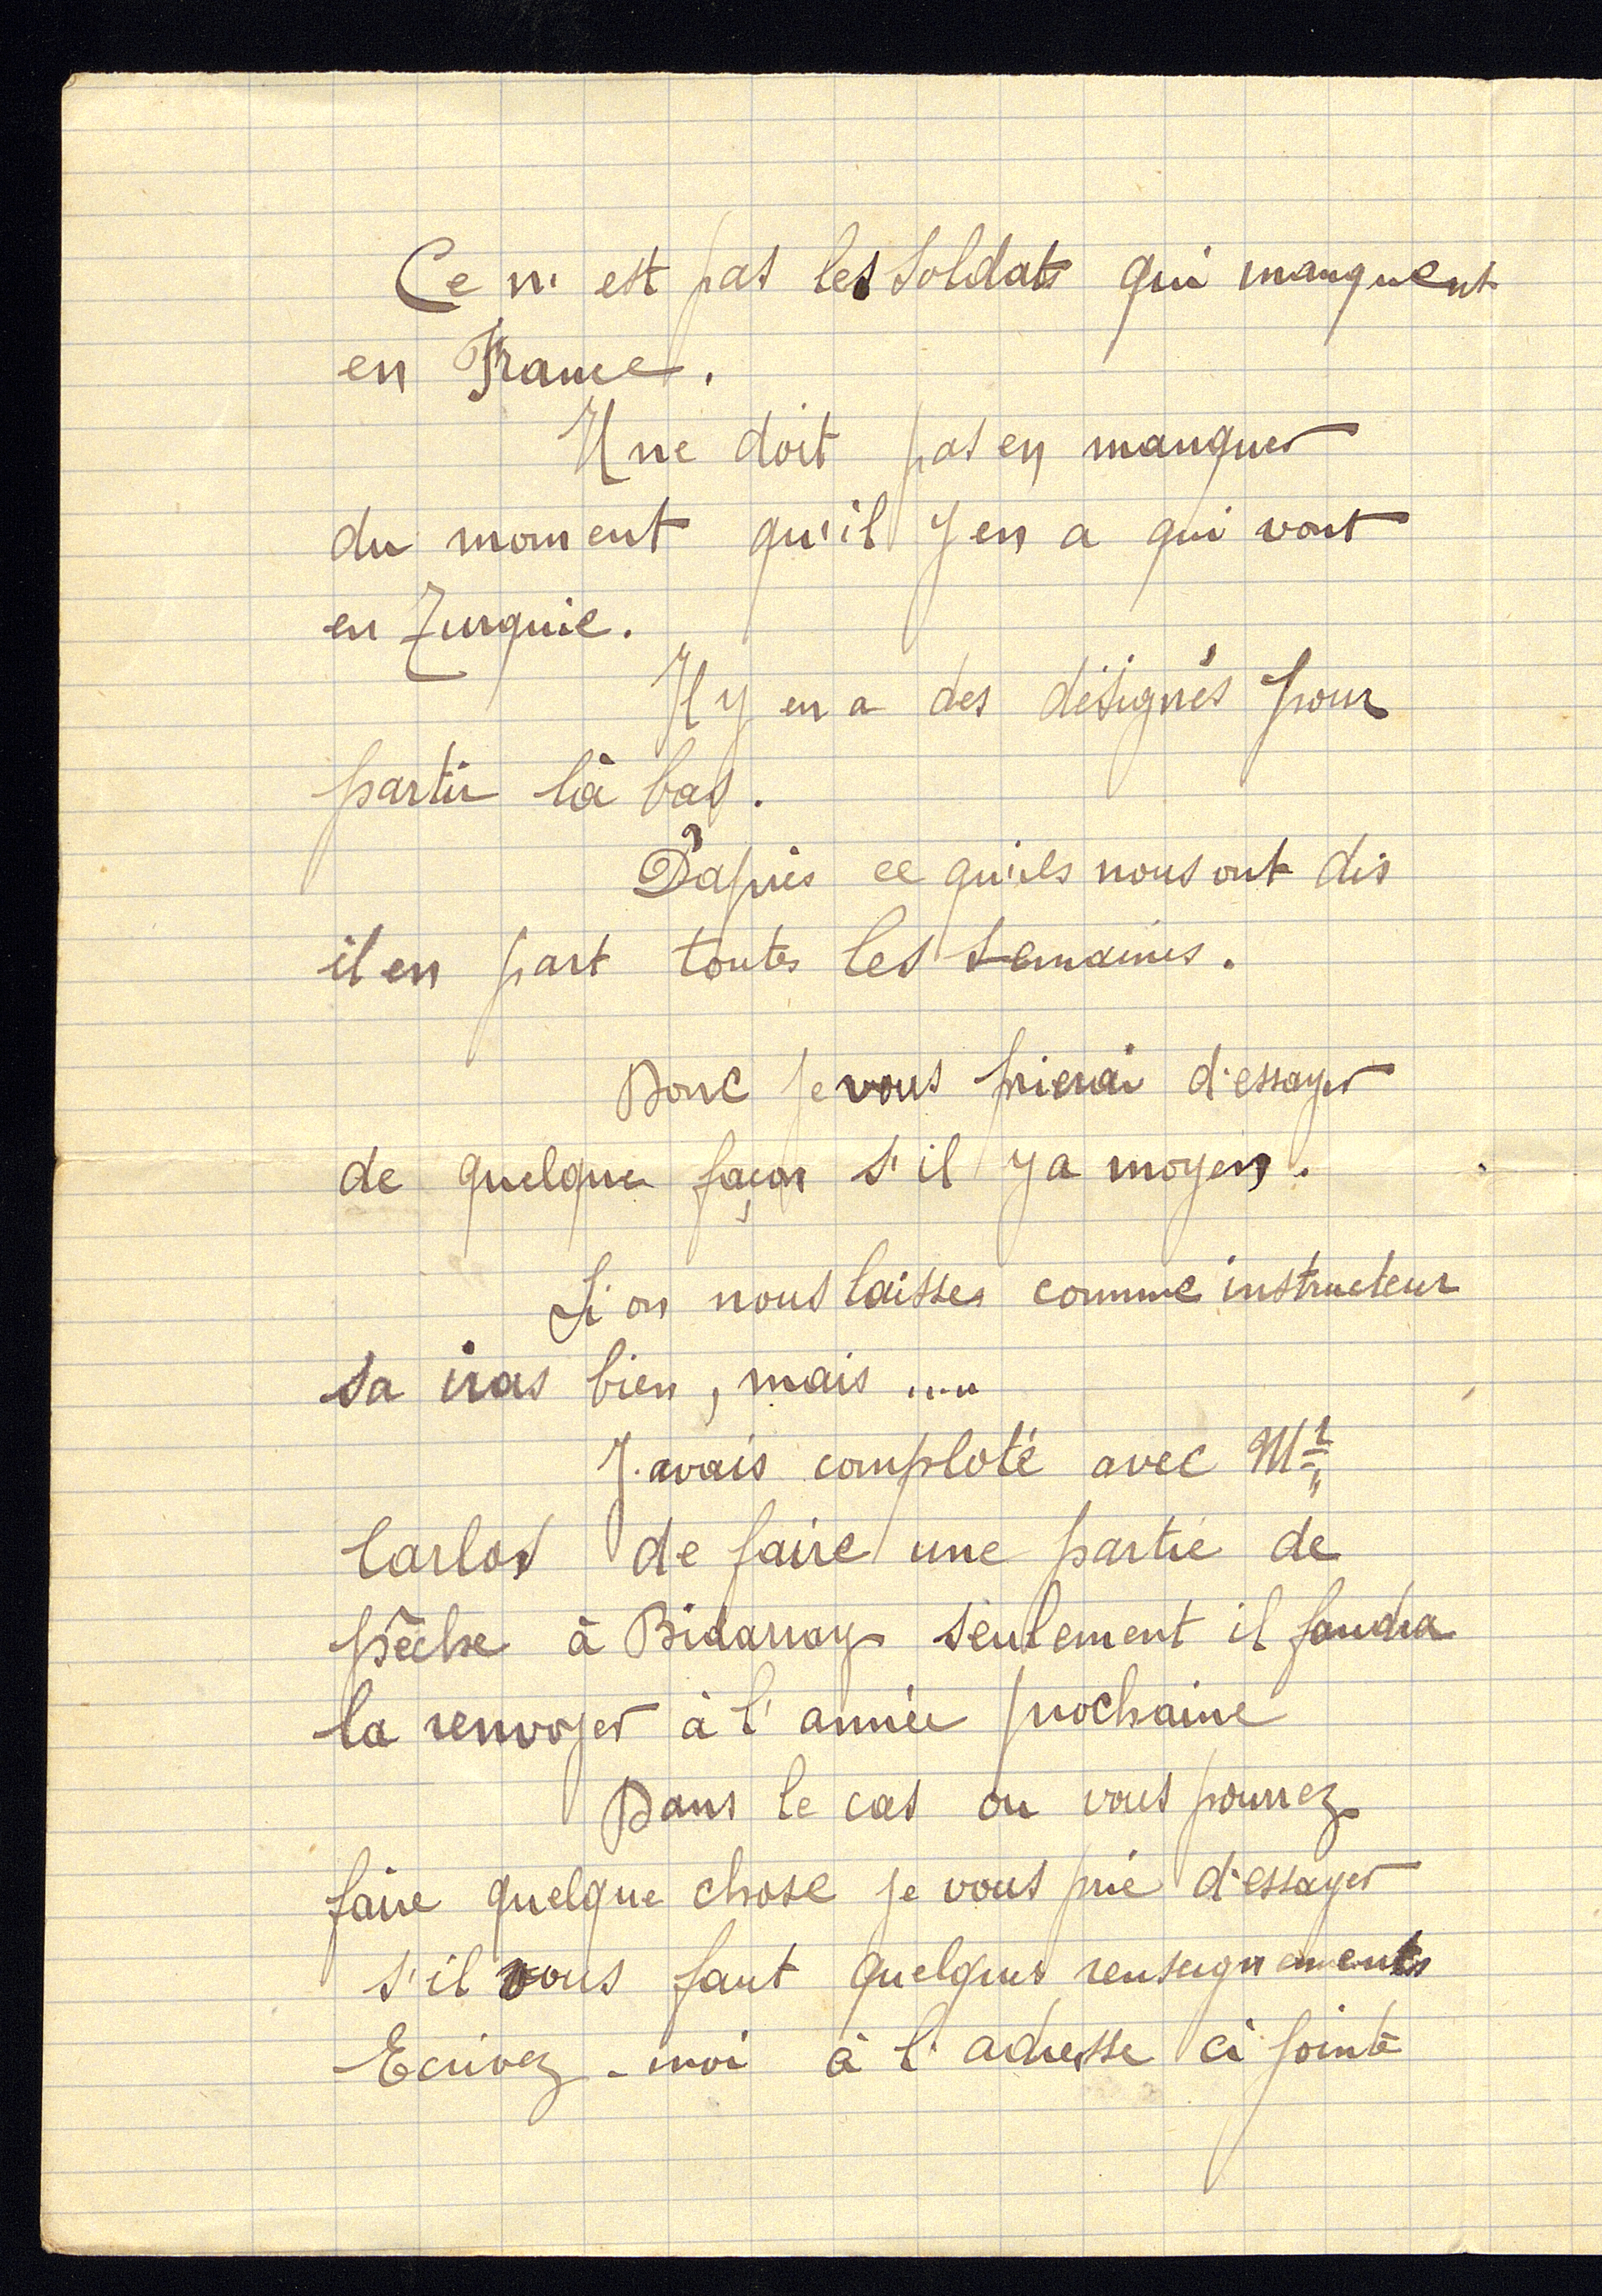 Ce n'est pas les soldats qui manquent
en France.
Il ne doit pas en manquer
du moment qu'il y en a qui vont
en Turquie.
Il y en a des désignés pour
partir là bas.
D'après ce qu'ils nous ont dis
il en part toutes les semaines.
Donc je vous prierai d'essayer
de quelque façon s'il y a moyen.
Si on nous laisses comme instructeur
sa iras bien, mais ....
J'avais comploté avec Mr
Carlos de faire une partie de
pêche à Bidarray seulement il faudra
la renvoyer à l'année prochaine
Dans le cas ou vous pourrez
faire quelque chose je vous prie d'essayer
s'il vous faut quelques renseignements
Ecrivez-moi à l'adresse ci jointe